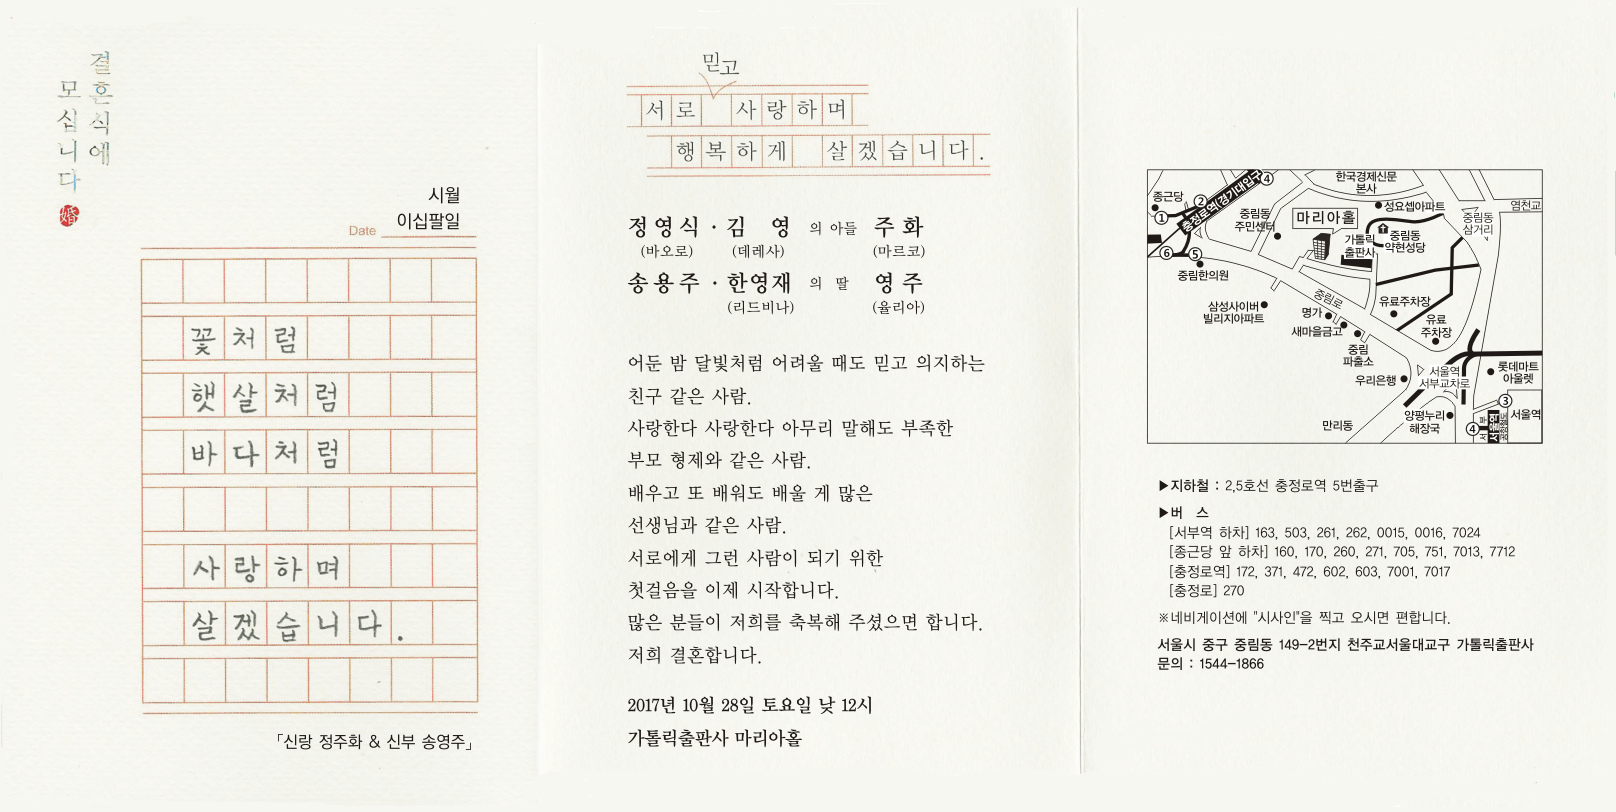 결혼식에
모십니다
婚
시월
Date 이십팔일
꽃처럼
햇살처럼
바다처럼
사랑하며
살겠습니다.
「신랑 정주화 & 신부 송영주」
믿고
서로 사랑하며
행복하게 살겠습니다.
정영식 · 김 영 의 아들 주화
(바오로) (데레사) (마르코)
송용주 · 한영재 의 딸 영주
(리드비나) (율리아)
어둔 밤 달빛처럼 어려울 때도 믿고 의지하는
친구 같은 사람.
사랑한다 사랑한다 아무리 말해도 부족한
부모 형제와 같은 사람.
배우고 또 배워도 배울 게 많은
선생님과 같은 사람.
서로에게 그런 사람이 되기 위한
첫걸음을 이제 시작합니다.
많은 분들이 저희를 축복해 주셨으면 합니다.
저희 결혼합니다.
2017년 10월 28일 토요일 낮 12시
가톨릭출판사 마리아홀
종근당
①
②
충정로역(경기대입구)
④
한국경제신문
본사
성요셉아파트
중림동
삼거리
염천교
중림동
주민센터
마리아홀
가톨릭
출판사
중림동
약현성당
⑥
⑤
중림한의원
삼성사이버
빌리지아파트
중림로
명가
새마을금고
중림
파출소
유료주차장
유료
주차장
우리은행
서울역
서부교차로
롯데마트
아울렛
만리동
양평누리
해장국
③
④
서울역
▶지하철 : 2,5호선 충정로역 5번출구
▶버 스
[서부역 하차] 163, 503, 261, 262, 0015, 0016, 7024
[종근당 앞 하차] 160, 170, 260, 271, 705, 751, 7013, 7712
[충정로역] 172, 371, 472, 602, 603, 7001, 7017
[충정로] 270
※네비게이션에 "시사인"을 찍고 오시면 편합니다.
서울시 중구 중림동 149-2번지 천주교서울대교구 가톨릭출판사
문의 : 1544-1866